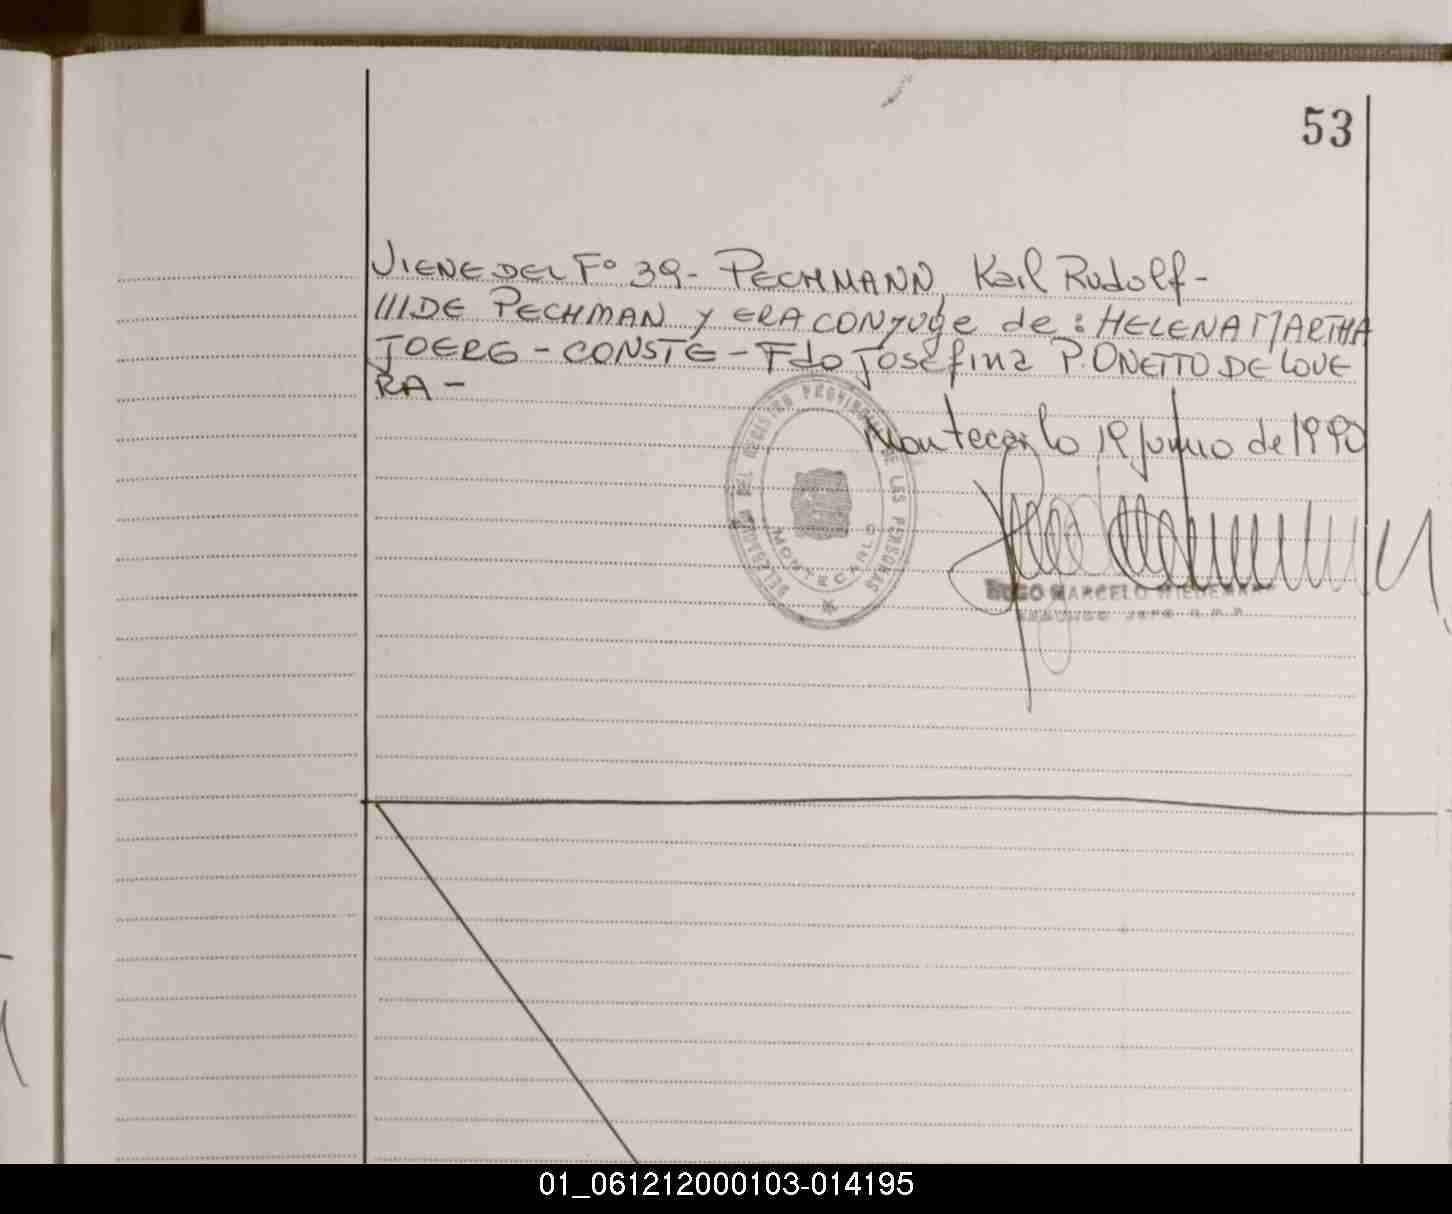 53
VIENE DEL Fº 39- PECHMANN, Karl Rudolf-
///DE PECHMAN Y ERA CONYUGE de: HELENA MARTHA
JOERG - CONSTE - Fdo Josefina P. ONETTO DE LOVE
RA-
Montecarlo 19 Junio de 1990
DELEGADO DEL REGISTRO PROVINCIAL DE LAS PERSONAS
MONTECARLO
HUGO MARCELO WIEDEMANN
SEGUNDO JEFE R.P.P.
01_061212000103-014195